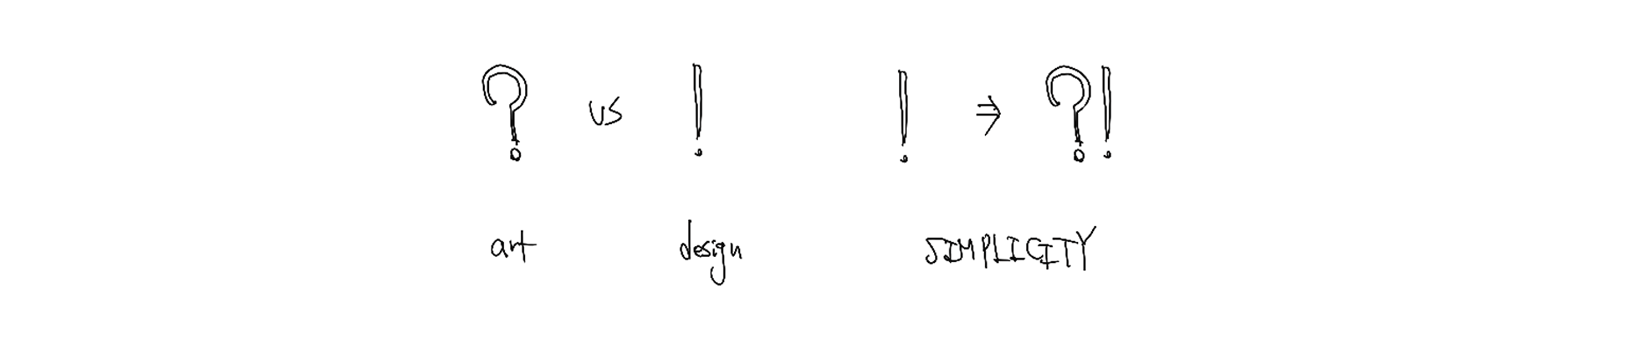 ? vs ! ! ⇒ ?!
art design SIMPLICITY